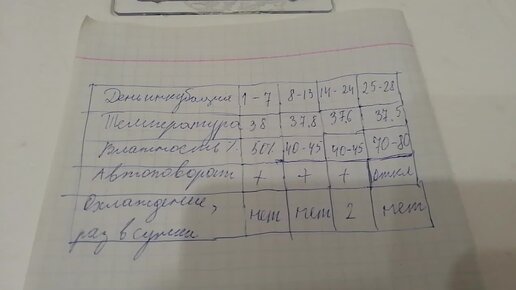 День инкубации 1-7 8-13 14-24 25-28
Температура 38 37.8 37.6 37.5
Влажность % 50% 40-45 40-45 70-80
Автоповорот + + + откл
Охлаждение, раз в сутки нет нет 2 нет